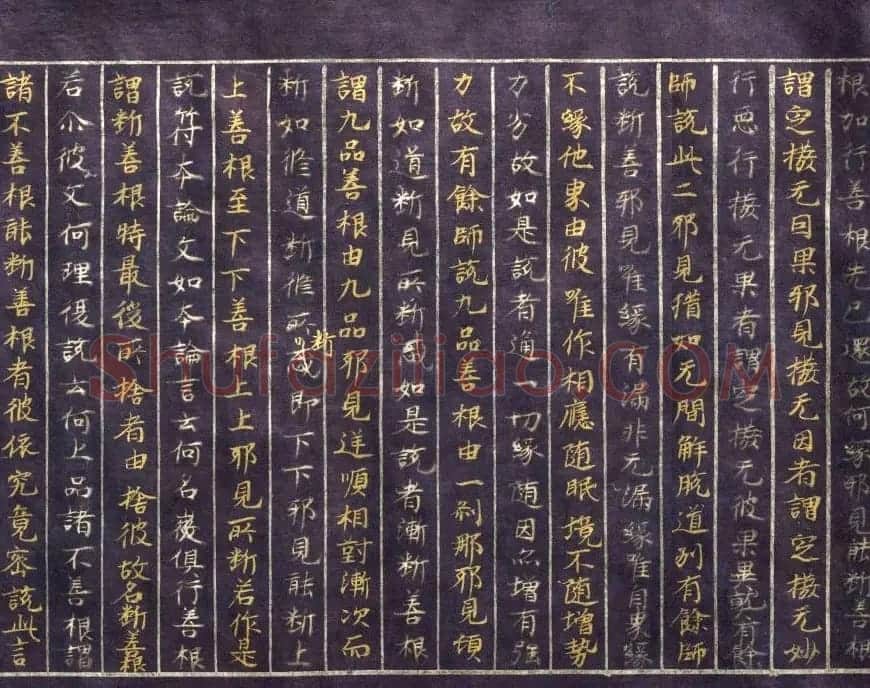 根加行善根先已還故何緣邪見能斷善根
謂定撥无因果邪見撥无因者謂定撥无妙
行惡行撥无果者謂定撥无彼果異熟有餘
師說此二邪見猶如无間解脫道別有餘師
說斷善邪見唯緣有漏非无漏緣唯自界緣
不緣他界由彼唯作相應随眠境不随增勢
力劣故如是說者通一切緣随因亦增有强
力故有餘師說九品善根由一刹那邪見頓
斷如道斷見所斷或如是說者漸斷善根
謂九品善根由九品邪見逆順相對漸次而
斷如脩道斷脩所斷或即下下邪見能斷上
上善根至下下善根上上邪見所斷若作是
說符本論文如本論言云何名㣲俱行善根
謂斷善根時最後所捨者由捨彼故名斷善根
若尒彼文何理復說云何上品諸不善根謂
諸不善根能斷善根者彼依究竟密說此言
Shufaziliao.COM